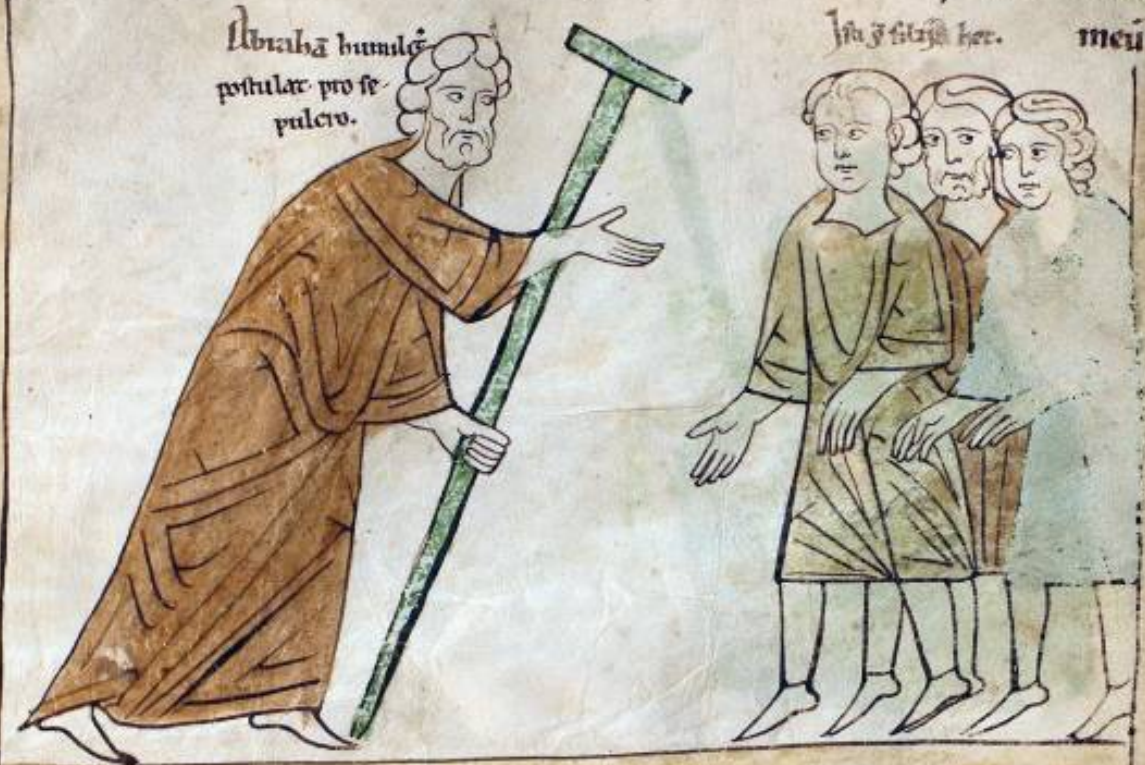 Abrahā humilit̄
postulat pro se-
pulcro.
filijs het.
meū